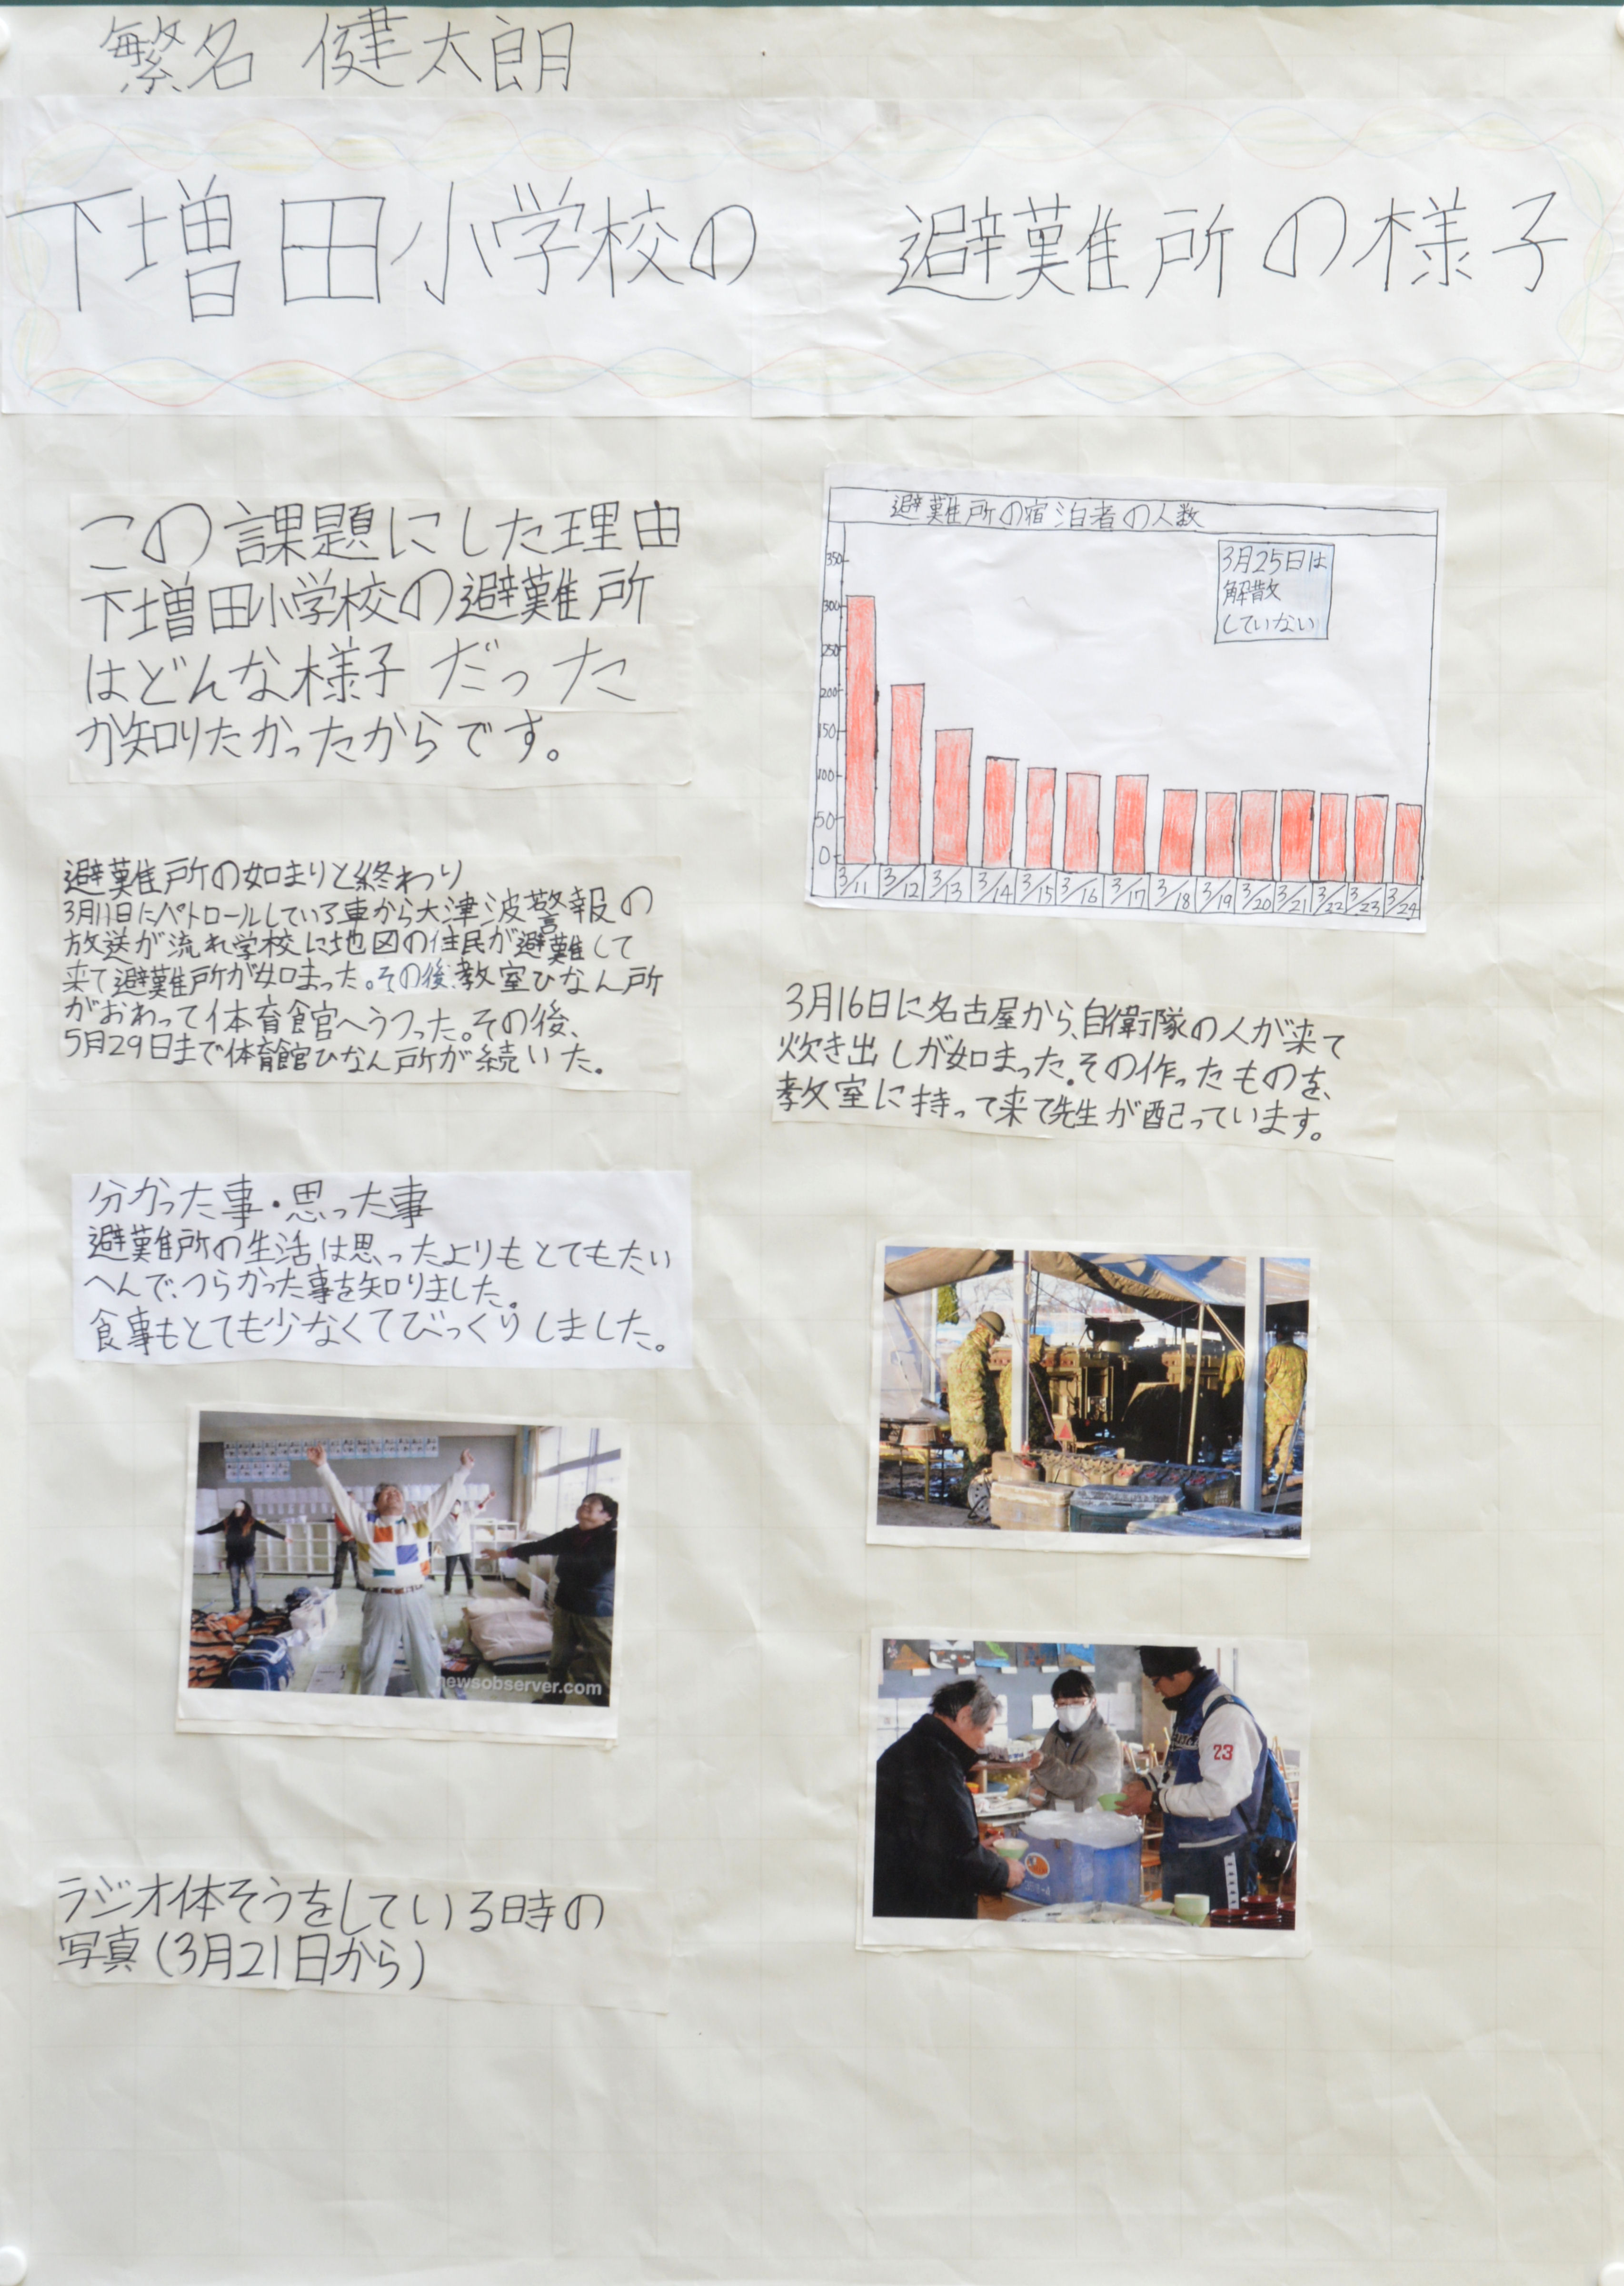 繁名 健太朗
下増田小学校の 避難所の様子
この課題にした理由
下増田小学校の避難所
はどんな様子だった
か知りたかったからです。
避難所の如まりと終わり
3月11日にパトロールしている車から大津波警報の
放送が流れ学校に地区の住民が避難して
来て避難所が如まった。その後、教室ひなん所
がおわって体育館へうつった。その後、
5月29日まで体育館ひなん所が続いた。
分かった事・思った事
避難所の生活は思ったよりもとてもたい
へんで、つらかった事を知りました。
食事もとても少なくてびっくりしました。
newsobserver.com
ラジオ体そうをしている時の
写真(3月21日から)
避難所の宿泊者の人数
3月25日は
解散
していない
350
300
250
200
150
100
50
0
3/11 3/12 3/13 3/14 3/15 3/16 3/17 3/18 3/19 3/20 3/21 3/22 3/23 3/24
3月16日に名古屋から、自衛隊の人が来て
炊き出しが如まった。その作ったものを、
教室に持って来て先生が配っています。
23